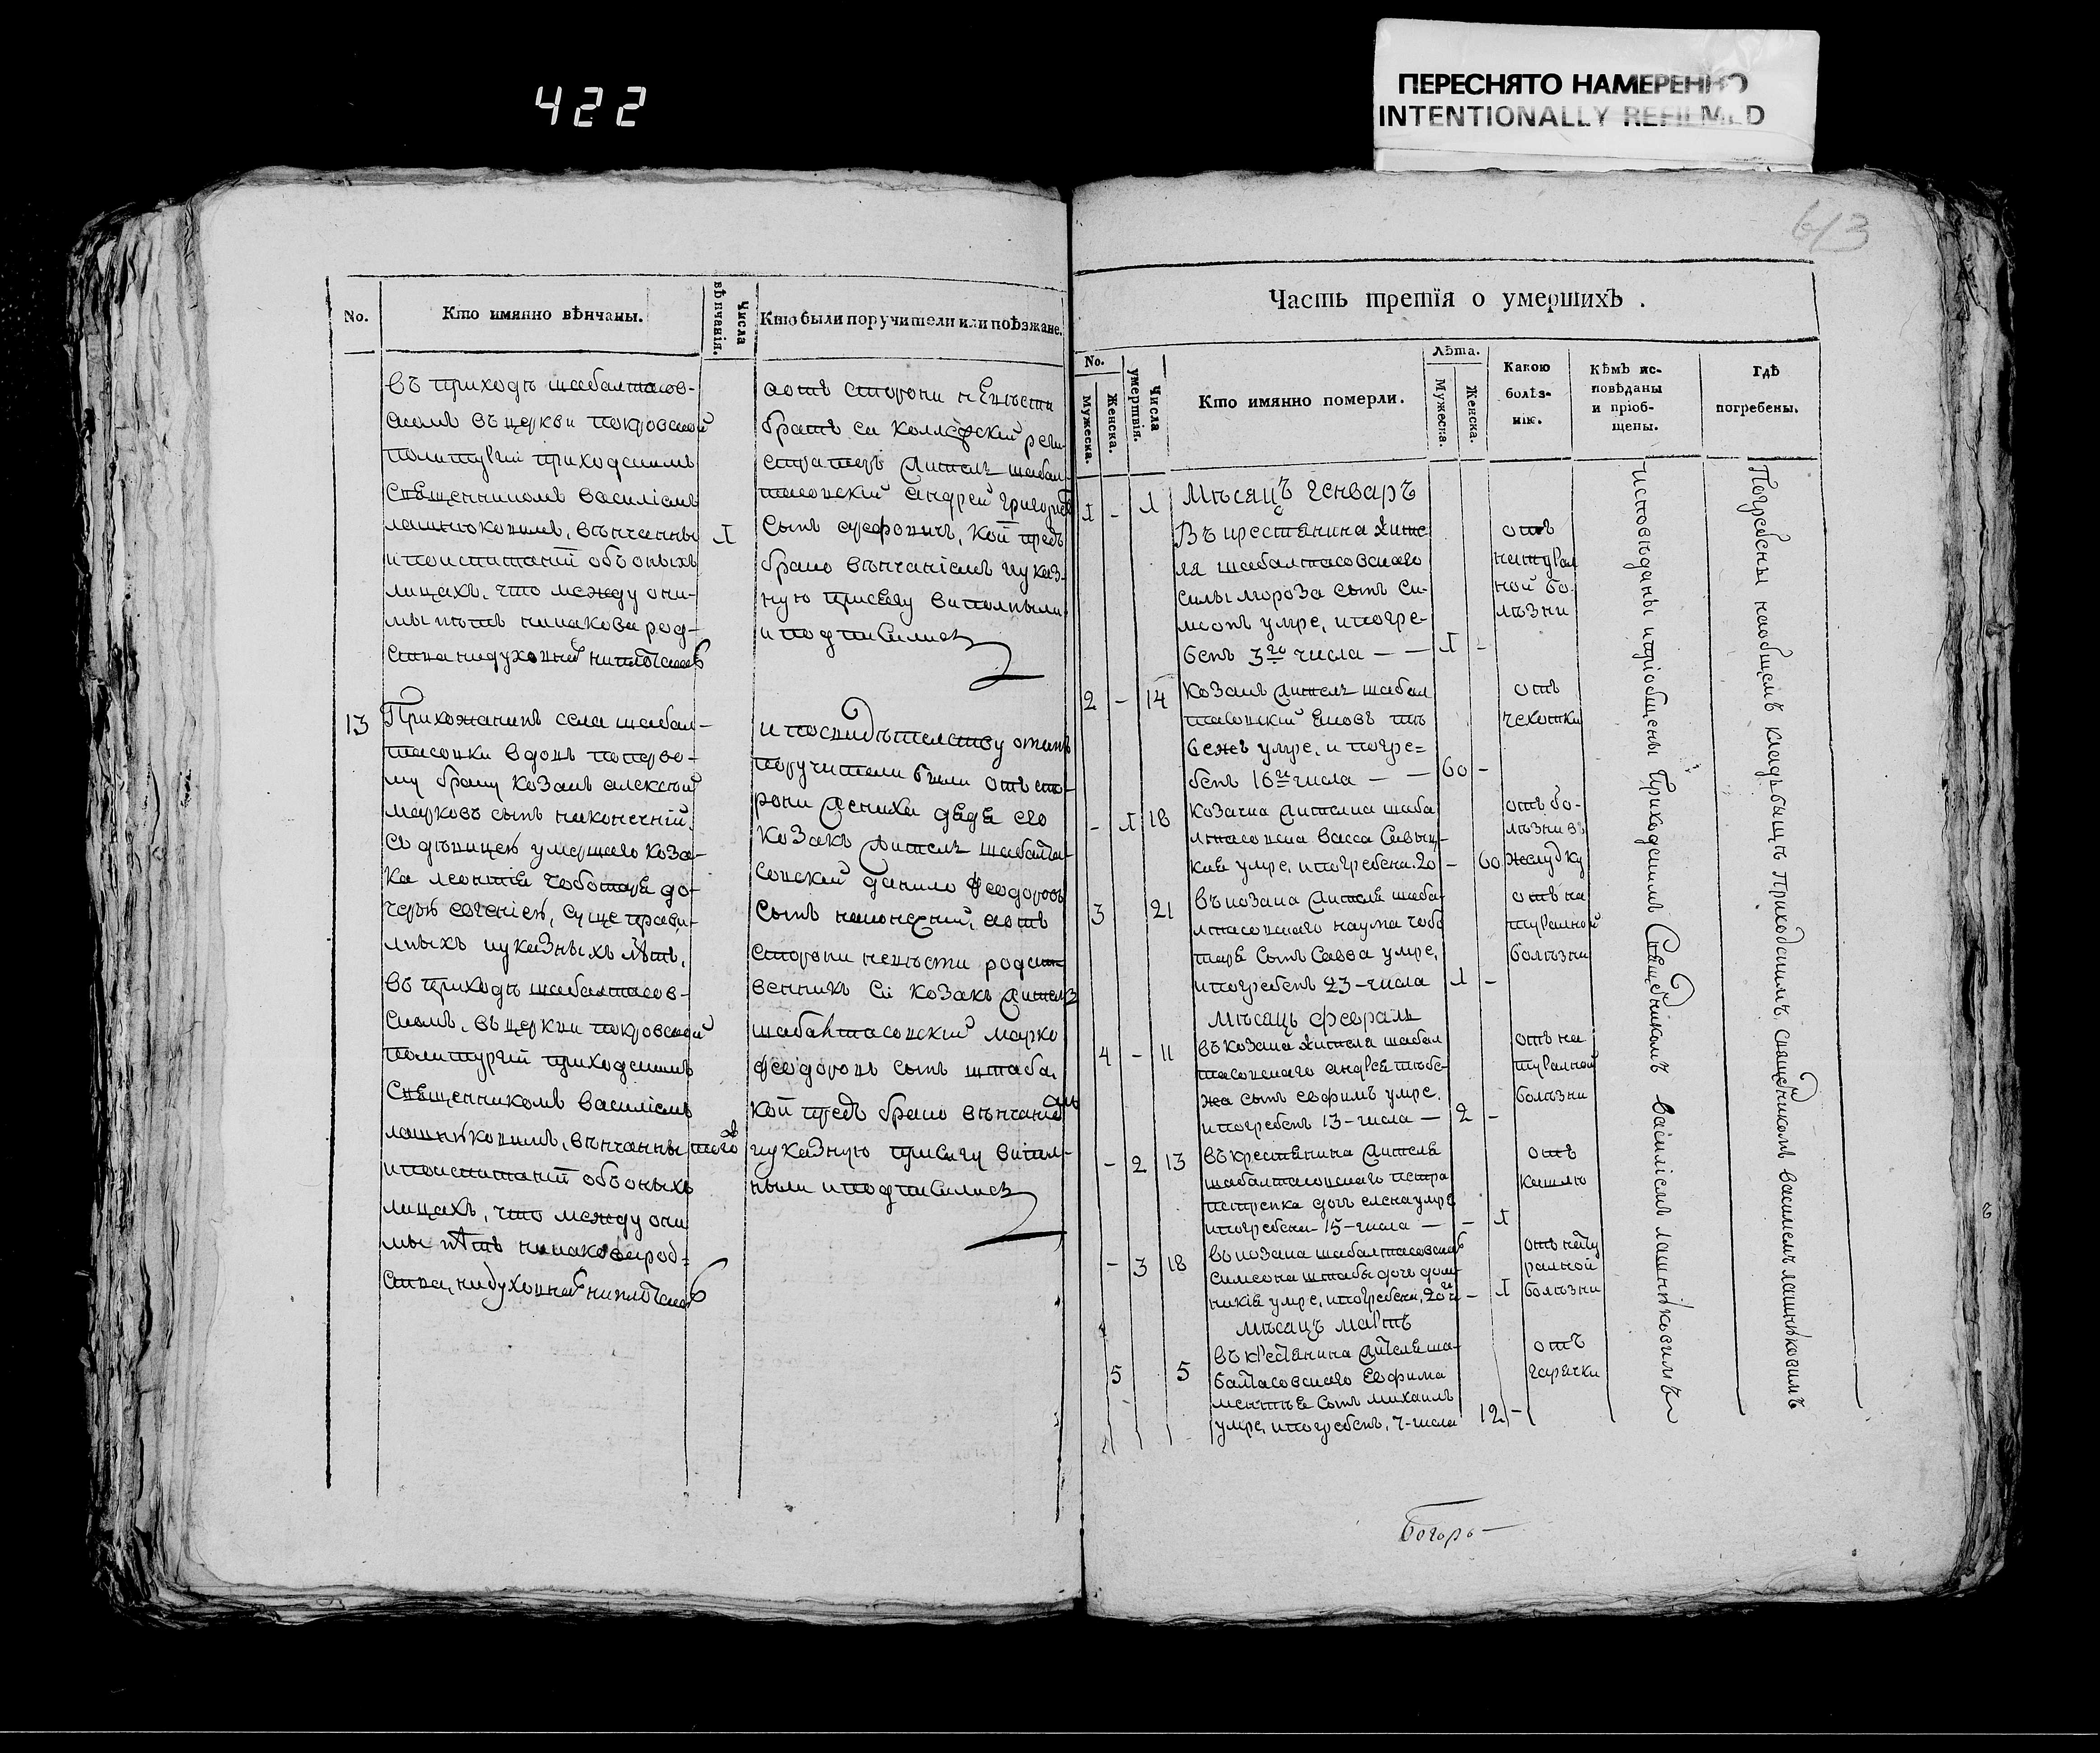 422
ПЕРЕСНЯТО НАМЕРЕННО
INTENTIONALLY REFILMED
613
No.
Кто имянно вѣнчаны.
Числа вѣнчанія.
Кто были поручители или поѣзжане.
въ приходѣ шабалтасов-
скомъ въ церкви покровской
политургіи приходскимъ
Священникомъ василіемъ
лашнюковимъ, вѣнчанны
ипоиспитаніи обоныхъ
лицахъ, что между они-
мы нѣтъ никакова род-
ства нидуховнаго ниплотскаго
1
аотъ сторони невѣсти
братъ ея коллежскій реги-
страторъ житель шабал-
тасовскій андрей григориевъ
сынъ, кой предъ
брано вѣнчаніемъ иуказ-
ную присягу виполныли
иподписались
13
Приходжанинъ села шабал-
тасовки вдовъ поперво-
му браку козакъ алексѣй
марковъ сынъ наконечній,
Сдѣвицею умершаго коза-
ка леонтія чоботаря до-
черю евгеніею, суще прави-
лныхъ иуказныхъ лѣтъ,
въ приходѣ шабалтасов-
скомъ, въ церкви покровской
политургіи приходскимъ
Священникомъ василіемъ
лашнюковимъ, вѣнчанны
ипоиспитаніи обоныхъ
лицахъ, что между они
мы нѣтъ никакова род-
ства, нидуховнаго ниплотскаго
того
ипосвидѣтелству отомъ
поручители били отъ сто-
рони жениха дядя его
козакъ житель шабалта-
совскій данило феодоровъ
сынъ наконечній, аотъ
сторони невѣсти родст-
венникъ ея козакъ житель
шабалтасовскій марко
феодоровъ сынъ штаба,
кой предъ брано вѣнчаніемъ
иуказную присягу випол-
ныли иподписались
Часть третія о умершихъ .
No.
Мужеска.
Женска.
Числа умертвія.
Кто имянно померли.
Лѣта.
Мужеска.
Женска.
Какою болѣз-нію.
Кѣмъ ис-повѣданы и пріоб-щены.
Гдѣ погребены.
Мѣсяцъ генваръ
1 - 1
Въ крестянина жите
ля шабалтасовскаго
силы мороза сынъ Си-
меонъ умре, ипогре-
бенъ 3го числа — — 1 -
отъ
натурал
ной бо-
лѣзни
2 - 14
Козакъ житель шабал
тасовскій яковъ
умре, и погре=
бенъ 16го числа — — 60 -
отъ
чехотки
- 1 18
Козачка жителка шаба
лтасовска васса
умре, ипогребена 20 - 60
отъ бо-
лѣзни въ
желудку
3 21
въ козака жителя шаба-
лтасовскаго наума чобо
таря сынъ савва умре,
ипогребенъ 23-числа 1 -
отъ на
туралной
болѣзни
мѣсяцъ февралъ
4 - 11
въ козака жителя шабал
тасовскаго андрея
сынъ евфимъ умре,
ипогребенъ 13-числа — 2 -
отъ на
туралной
болѣзни
- 2 13
въ крестянина жителя
шабалтасовскаго петра
петренка дочь елена умре
ипогребена 15-числа — - 1
отъ
кашлю
- 3 18
въ козака шабалтасовскаго
симеона штабы дочь дом-
никія умре, ипогребена, 20 ч - 1
отъ нату
ралной
болѣзни
мѣсяцъ мартъ
5 5
въ крестянина жителя ша-
балтасовскаго евфима
сынъ михаилъ
умре, ипогребенъ, 7-числа 12 -
отъ
гарячки
исповѣданы ипріобщены приходскимъ Священникомъ василіемъ лашнюковимъ
Погребены наобщемъ кладъбищѣ приходскимъ священникомъ василіемъ лашнюковимъ